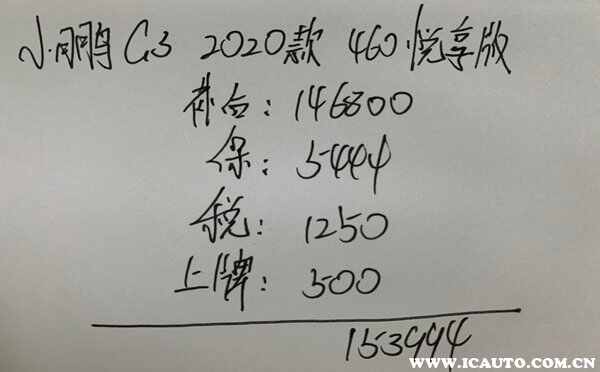 小鹏G3 2020款 460悦享版
补后: 146800
保: 5444
税: 1250
上牌: 500
153994
www.icauto.com.cn